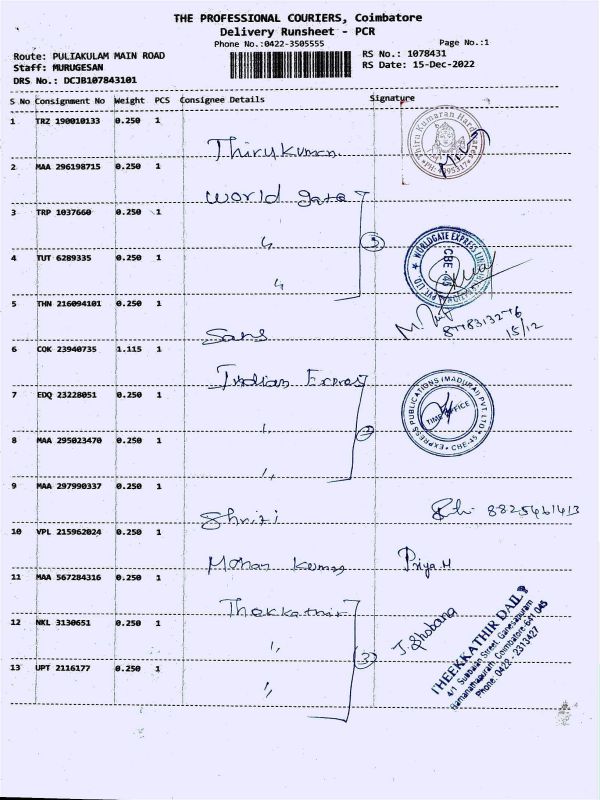 THE PROFESSIONAL COURIERS, Coimbatore
Delivery Runsheet - PCR
Phone No.:0422-3505555
Page No.:1
Route: PULIAKULAM MAIN ROAD
RS No.: 1078431
Staff: MURUGESAN
RS Date: 15-Dec-2022
DRS No.: DCJB107843101
S No Consignment No Weight PCS Consignee Details Signature
1 TRZ 190010133 0.250 1
Thirukumaran
Thiru Kumaran Hardwares
2 MAA 296198715 0.250 1
World gate
3 TRP 1037660 0.250 1
〃
3
4 TUT 6289335 0.250 1
〃
WORLDGATE EXPRESS
PVT LTD.
CBE - 45
5 THN 216094101 0.250 1
Sans
15/12
6 COK 23940735 1.115 1
Indian Express
7 EDQ 23228051 0.250 1
〃
2
EXPRESS PUBLICATIONS (MADURAI) PVT. LTD
TIME OFFICE
CBE-45
8 MAA 295023470 0.250 1
〃
9 MAA 297990337 0.250 1
Shrizi
8825461413
10 VPL 215962024 0.250 1
Mohan Kumar
Priya.M
11 MAA 567284316 0.250 1
Thekkathir
12 NKL 3130651 0.250 1
〃
3
J. Shobana
13 UPT 2116177 0.250 1
〃
THEEKKATHIR DAILY
Ramanathapuram, Coimbatore-641 045
Phone: 0422 - 2313427